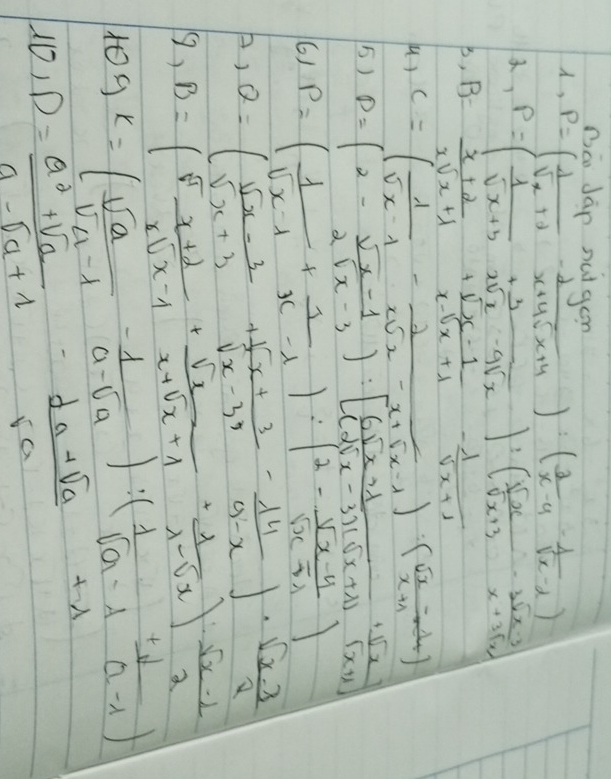 Bài tập rút gọn
1, P = (1/(√x+2) - 2/(x+4√x+4)) : (2/(x-4) - 1/(√x-2))
2, P = (1/(√x+3) + 3/(x√x-9√x)) : (√x/(√x+3) - (3√x-3)/(x+3√x))
3, B = (x+2)/(x√x+1) + (√x-1)/(x-√x+1) - 1/(√x+1)
4, C = (1/(√x-1) - 2/(x√x-x+√x-1)) : (
5, P = (2 - (√x-1)/(2√x-3)) : [(6√x+1)/((2√x-3)(√x+1)) + √x/(√x+1)]
6, P = (1/(√x-1) + 1/(x-1)) : (2 - (√x-4)/(√x+1))
7, Q = ((√x-3)/(√x+3) + (√x+3)/(√x-3) - 14/(9-x)) · (√x-3)/2
9, B = ((x+2)/(x√x-1) + √x/(x+√x+1) + 1/(1-√x)) : (√x-1)/2
K = (√a/(√a-1) - 1/(a-√a)) : (1/(√a-1) + 2/(a-1))
10, P = (a²+√a)/(a-√a+1) - (2a+√a)/√a + 1